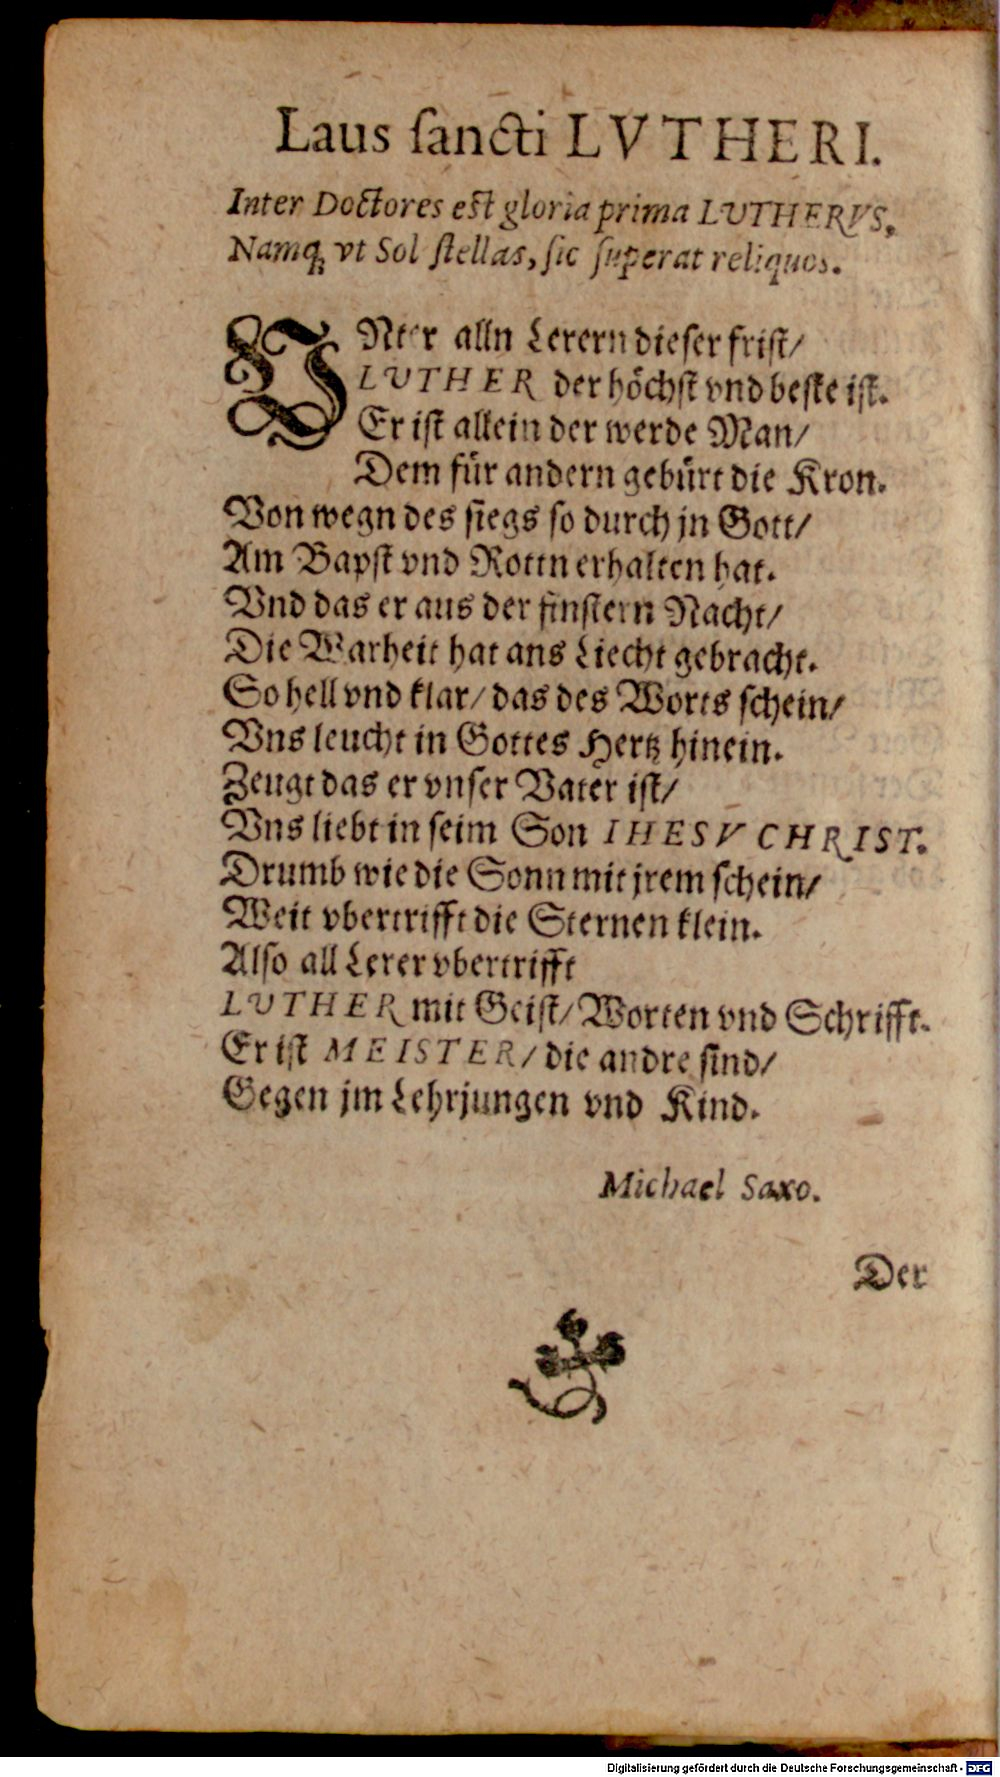 Laus ſancti LVTHERI.
Inter Doctores eſt gloria prima LUTHERVS,
Namq; vt Sol ſtellas, ſic ſuperat reliquos.
VNter alln Lerern dieſer friſt/
LUTHER der hoͤchſt vnd beſte iſt.
Er iſt allein der werde Man/
Dem fuͤr andern gebuͤrt die Kron.
Von wegn des ſiegs ſo durch jn Gott/
Am Bapſt vnd Rottn erhalten hat.
Vnd das er aus der finſtern Nacht/
Die Warheit hat ans Liecht gebracht.
So hell vnd klar/ das des Worts ſchein/
Vns leucht in Gottes Hertz hinein.
Zeugt das er vnſer Vater iſt/
Vns liebt in ſeim Son IHESV CHRIST.
Drumb wie die Sonn mit jrem ſchein/
Weit vbertrifft die Sternen klein.
Alſo all Lerer vbertrifft
LUTHER mit Geiſt/ Worten vnd Schrifft.
Er iſt MEISTER/ die andre ſind/
Gegen jm Lehrjungen vnd Kind.
Michael Saxo.
Der
Digitalisierung gefördert durch die Deutsche Forschungsgemeinschaft - DFG